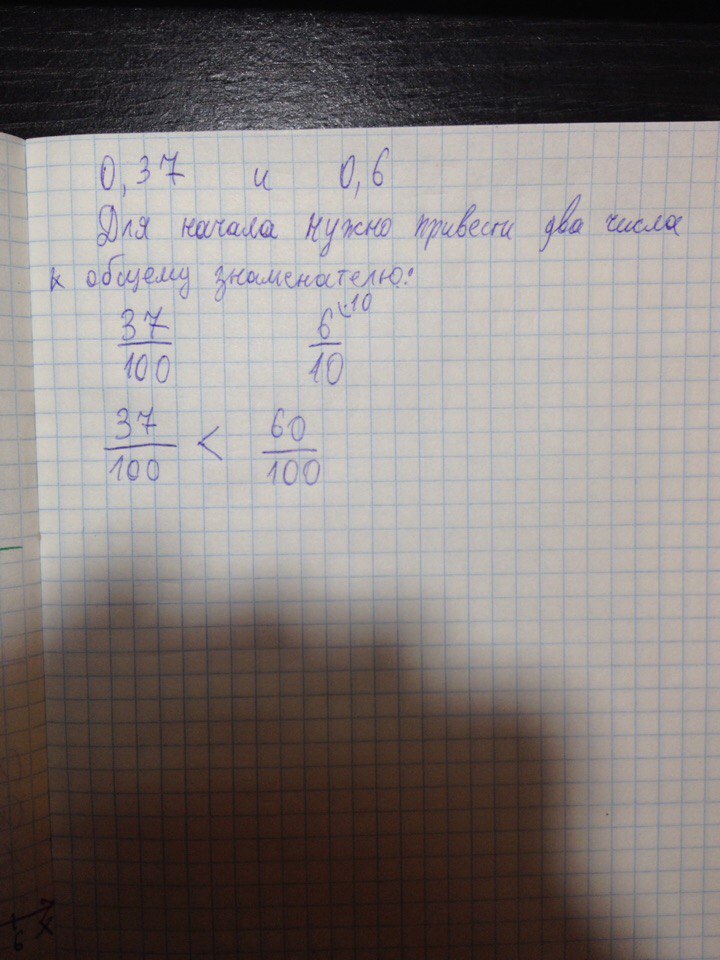 0,37 и 0,6
Для начала нужно привести два числа
к общему знаменателю:
37/100 6/10 ·10
37/100 < 60/100
6 x